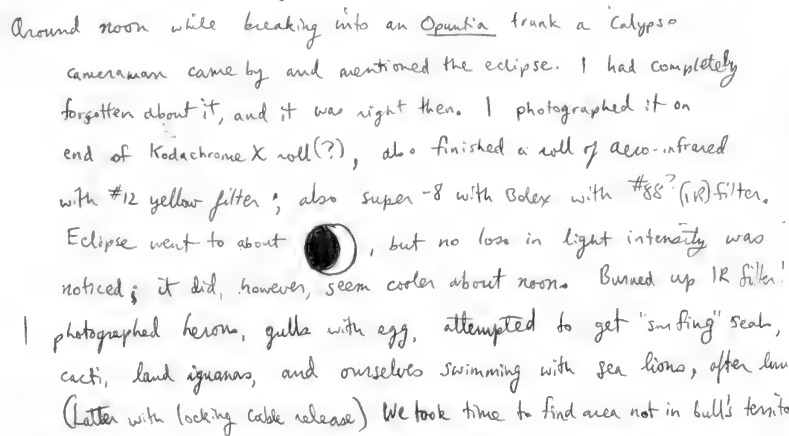 Around noon while breaking into an Opuntia trunk a Calypso
cameraman came by and mentioned the eclipse. I had completely
forgotten about it, and it was right then. I photographed it on
end of Kodachrome X roll(?), also finished a roll of aero-infrared
with #12 yellow filter; also super-8 with Bolex with #88? (IR) filter.
Eclipse went to about , but no loss in light intensity was
noticed; it did, however, seem cooler about noon. Burned up IR filter!
I photographed herons, gulls with egg, attempted to get "surfing" seals,
cacti, land iguanas, and ourselves swimming with sea lions, after
(Latter with locking cable release) We took time to find area not in bull's